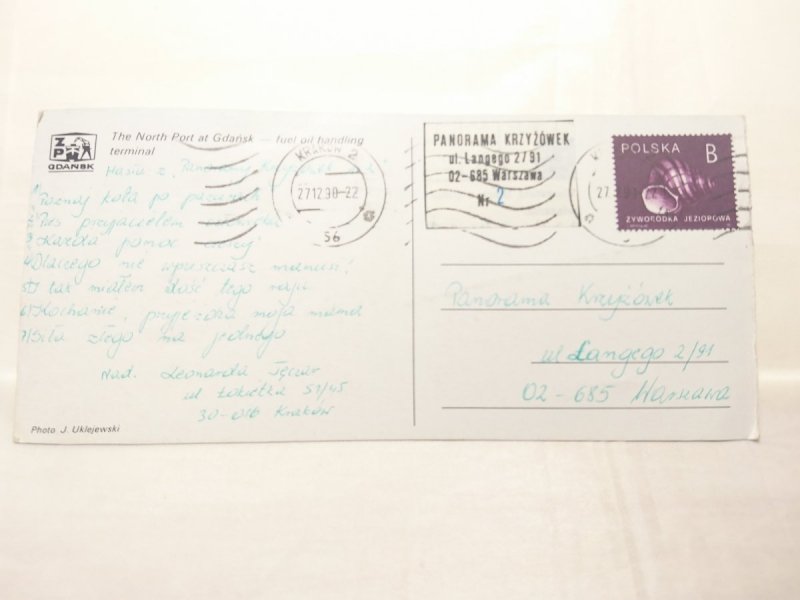 ZPH
GDAŃSK
The North Port at Gdańsk — fuel oil handling
terminal
Hasła z „Panoramy Krzyżówek
1) Poznaj koła po
2) Pies przyjacielem człowieka
3) Każda pomoc
4) Dlaczego nie wpuszczasz mamusi!
5) I tak miałem dość tego raju
6) Kochanie, przyjeżdża moja mama
7) Siła złego na jednego
Nad. Leonarda
ul Łokietka 51/45
30-016 Kraków
Photo J. Uklejewski
KRAKÓW 2
27.12.90-22
56
PANORAMA KRZYŻÓWEK
ul. Langego 2/91
02-685 Warszawa
Nr 2
POLSKA B
ŻYWORÓDKA JEZIOROWA
Panorama Krzyżówek
ul Langego 2/91
02-685 Warszawa